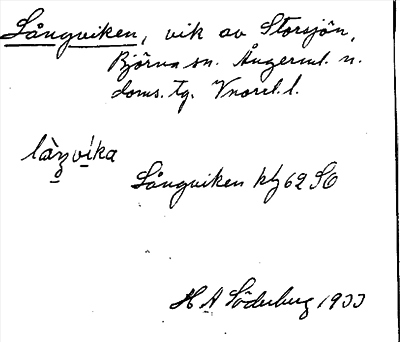 Långviken, vik av Storsjön,
Björna sn. Ångerml. n.
doms. tg. Vnorrl. l.
làŋvíka
Långviken kbl 62 SO
H A Söderberg 1933